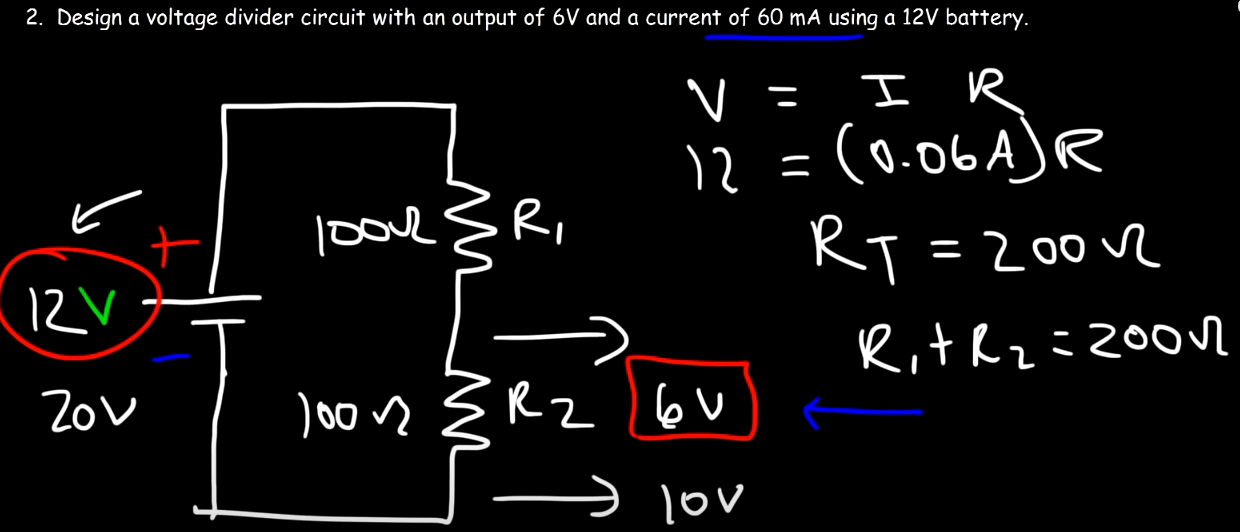 2. Design a voltage divider circuit with an output of 6V and a current of 60 mA using a 12V battery.
V = I R
12 = (0.06A)R
RT = 200Ω
R1 + R2 = 200Ω
100Ω R1
+
12V
-
20V
100Ω R2 6V
10V